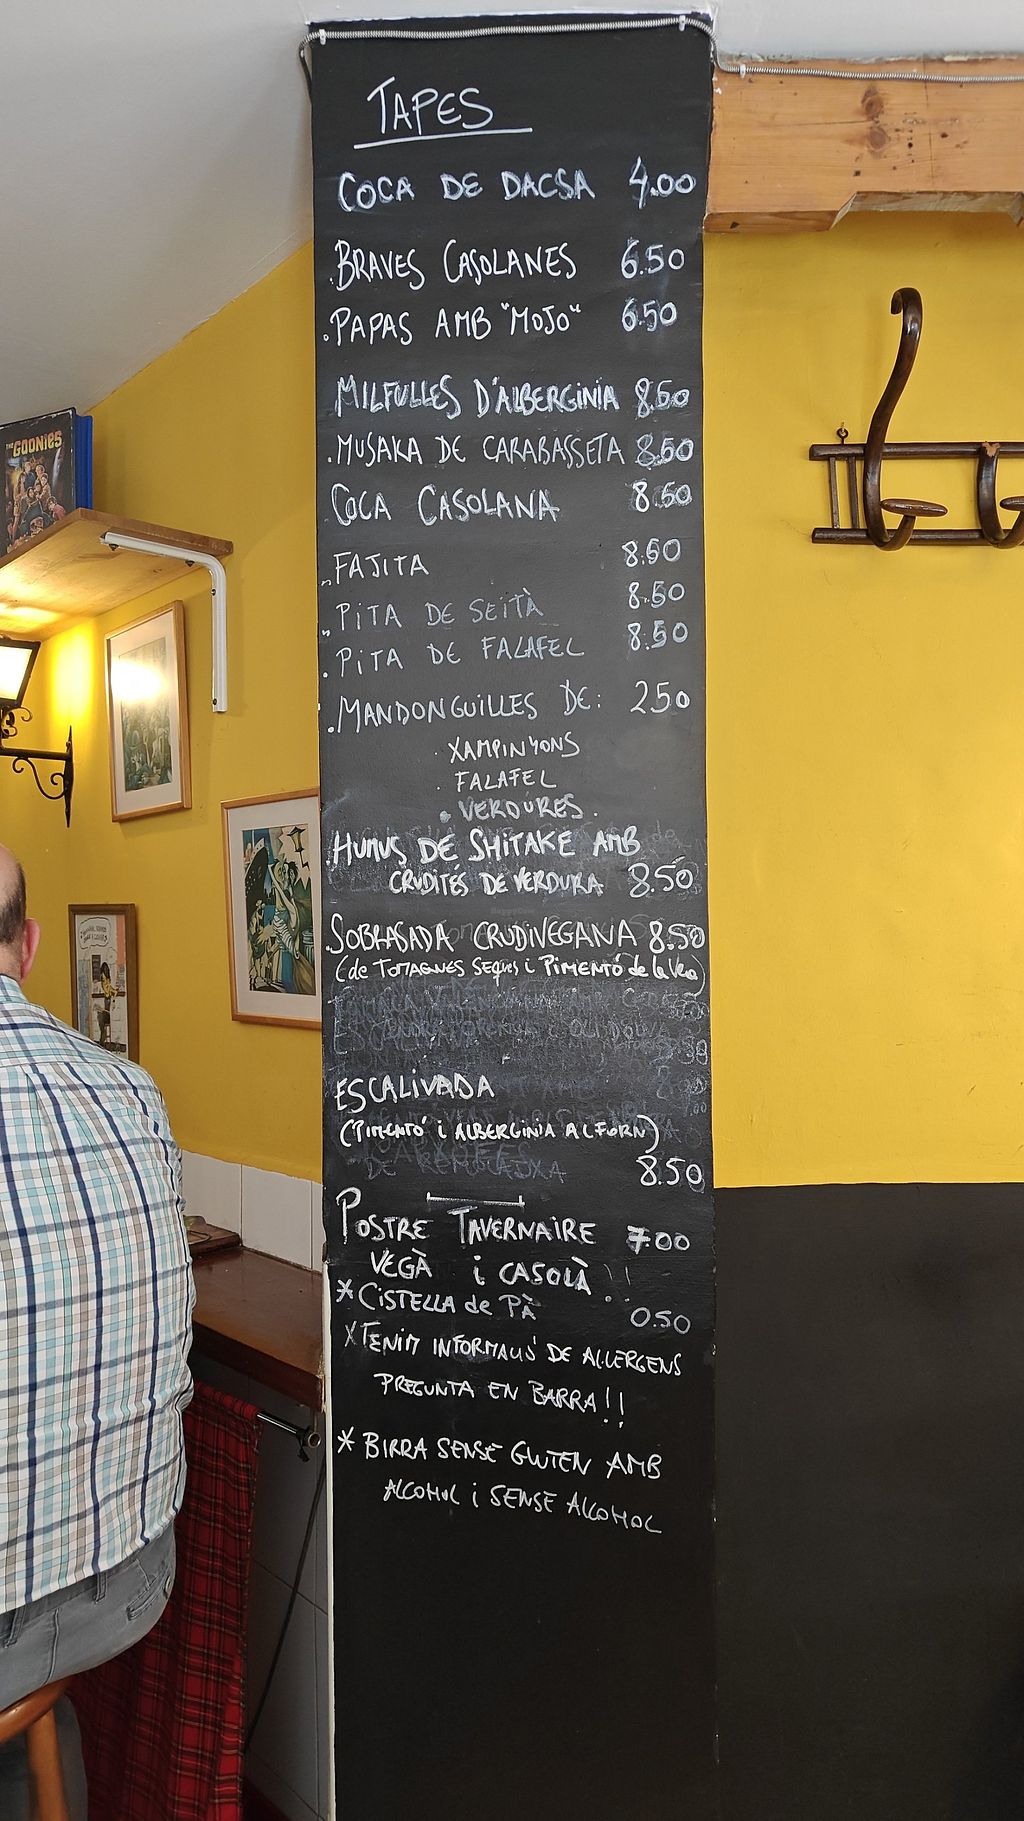 TAPES
COCA DE DACSA 4.00
BRAVES CASOLANES 6.50
PAPAS AMB "MOJO" 6.50
MILFULLES D'ALBERGINIA 8.50
MUSAKA DE CARABASSETA 8.50
COCA CASOLANA 8.50
FAJITA 8.50
PITA DE SEITÀ 8.50
PITA DE FALAFEL 8.50
MANDONGUILLES DE: 2.50
XAMPINYONS
FALAFEL
VERDURES.
HUMUS DE SHITAKE AMB
CRUDITÉS DE VERDURA 8.50
SOBRASADA CRUDIVEGANA 8.50
(de TOMAQUES SEQUES i PIMENTÓ de la Vera)
ESCALIVADA
(PIMENTÓ i ALBERGINIA AL FORN)
8.50
POSTRE TAVERNAIRE 7.00
VEGÀ i CASOLÀ!!
*CISTELLA de PÀ 0.50
*TENIM INFORMACIÓ DE AL.LERGENS
PREGUNTA EN BARRA!!
* BIRRA SENSE GLUTEN AMB
ALCOHOL i SENSE ALCOHOL
THE GOONIES